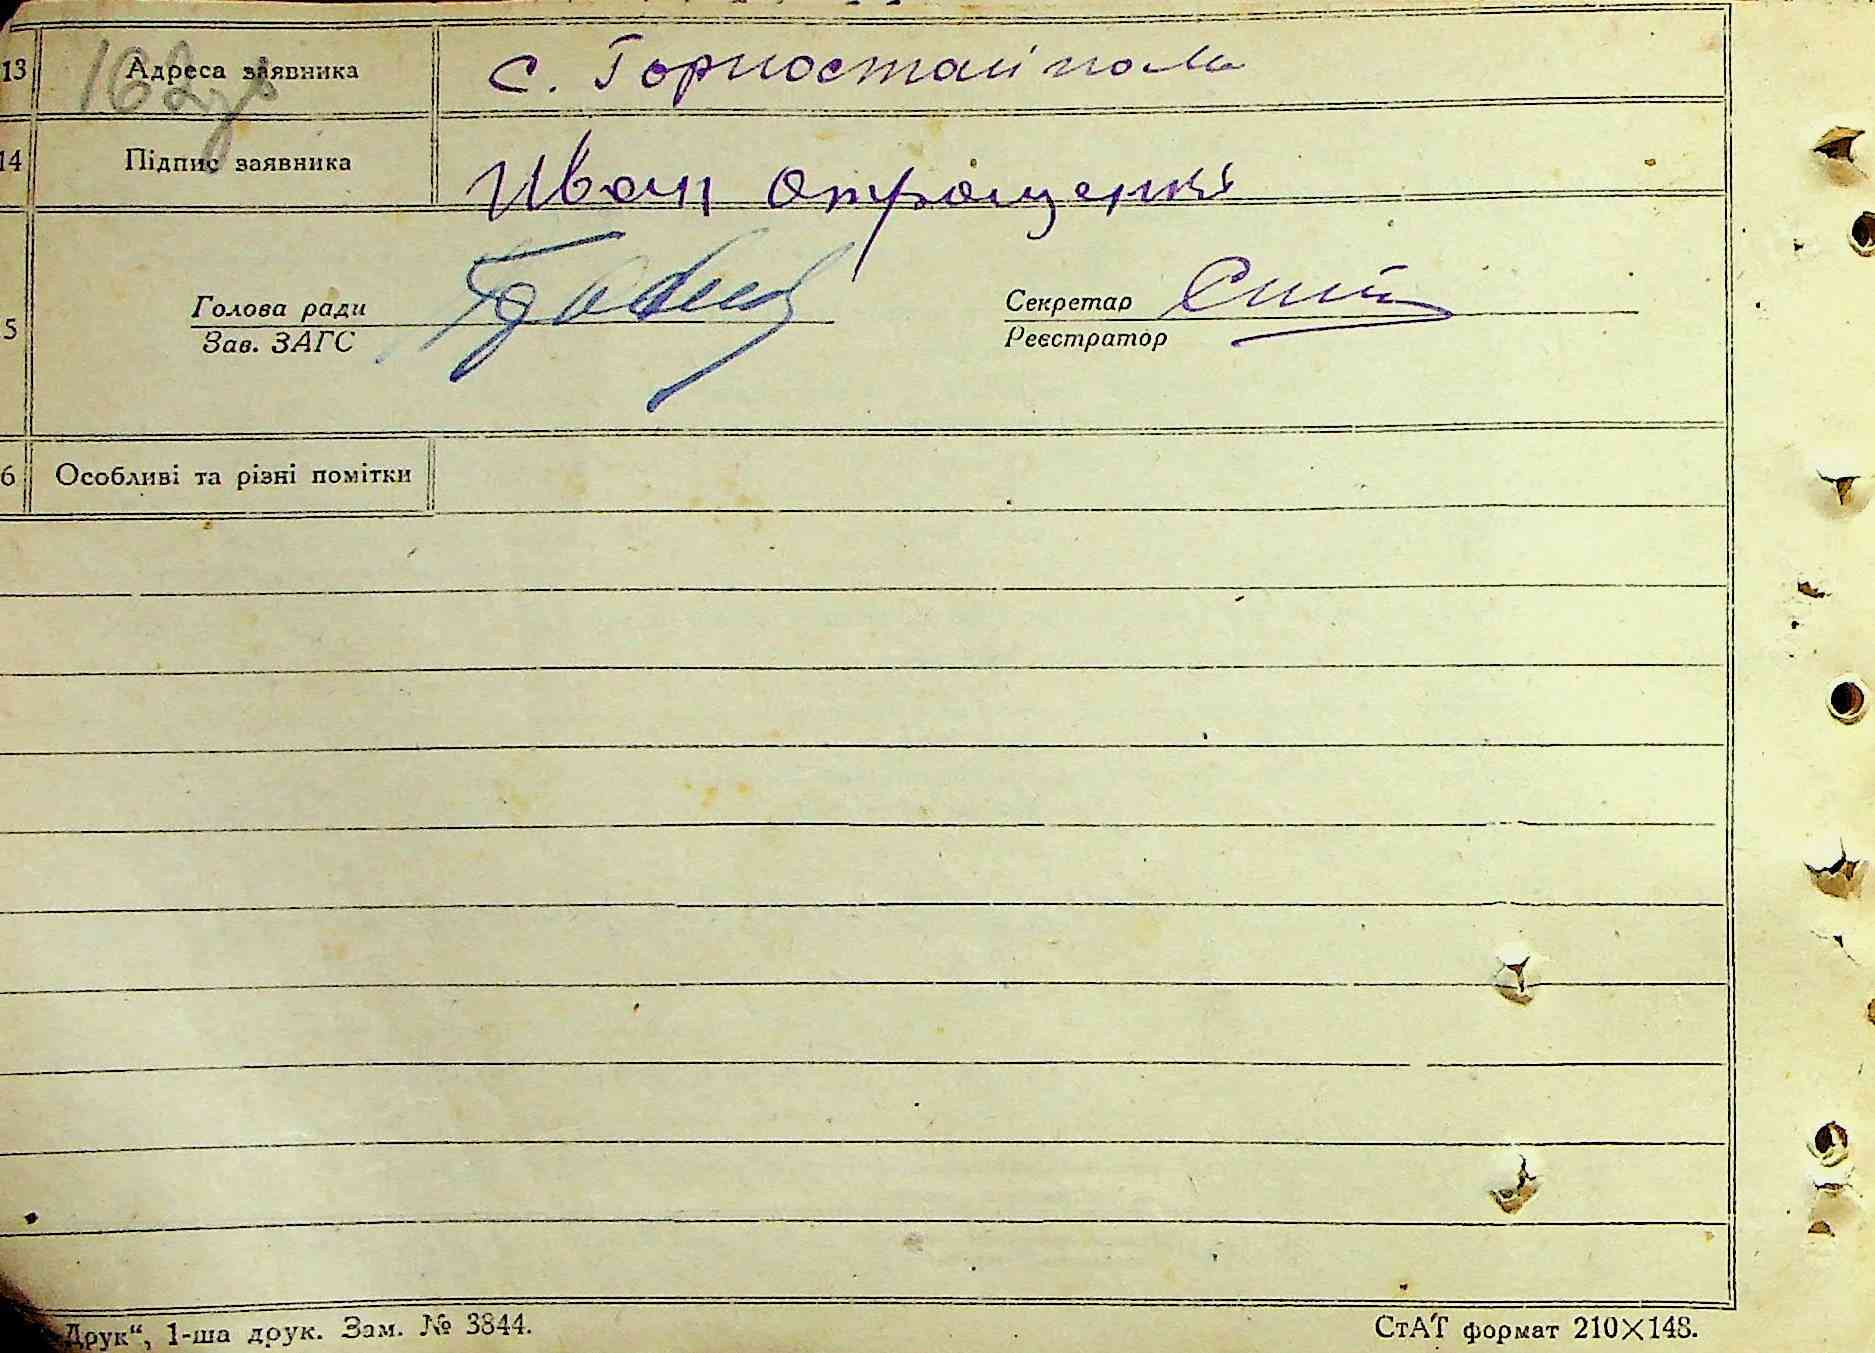 13 Адреса заявника с. Горностайпола
14 Підпис заявника Иван Отрощенко
5 Голова ради Секретар
Зав. ЗАГС Реєстратор
6 Особливі та різні помітки
Друк“, 1-ша друк. Зам. № 3844. СтАТ формат 210×148.